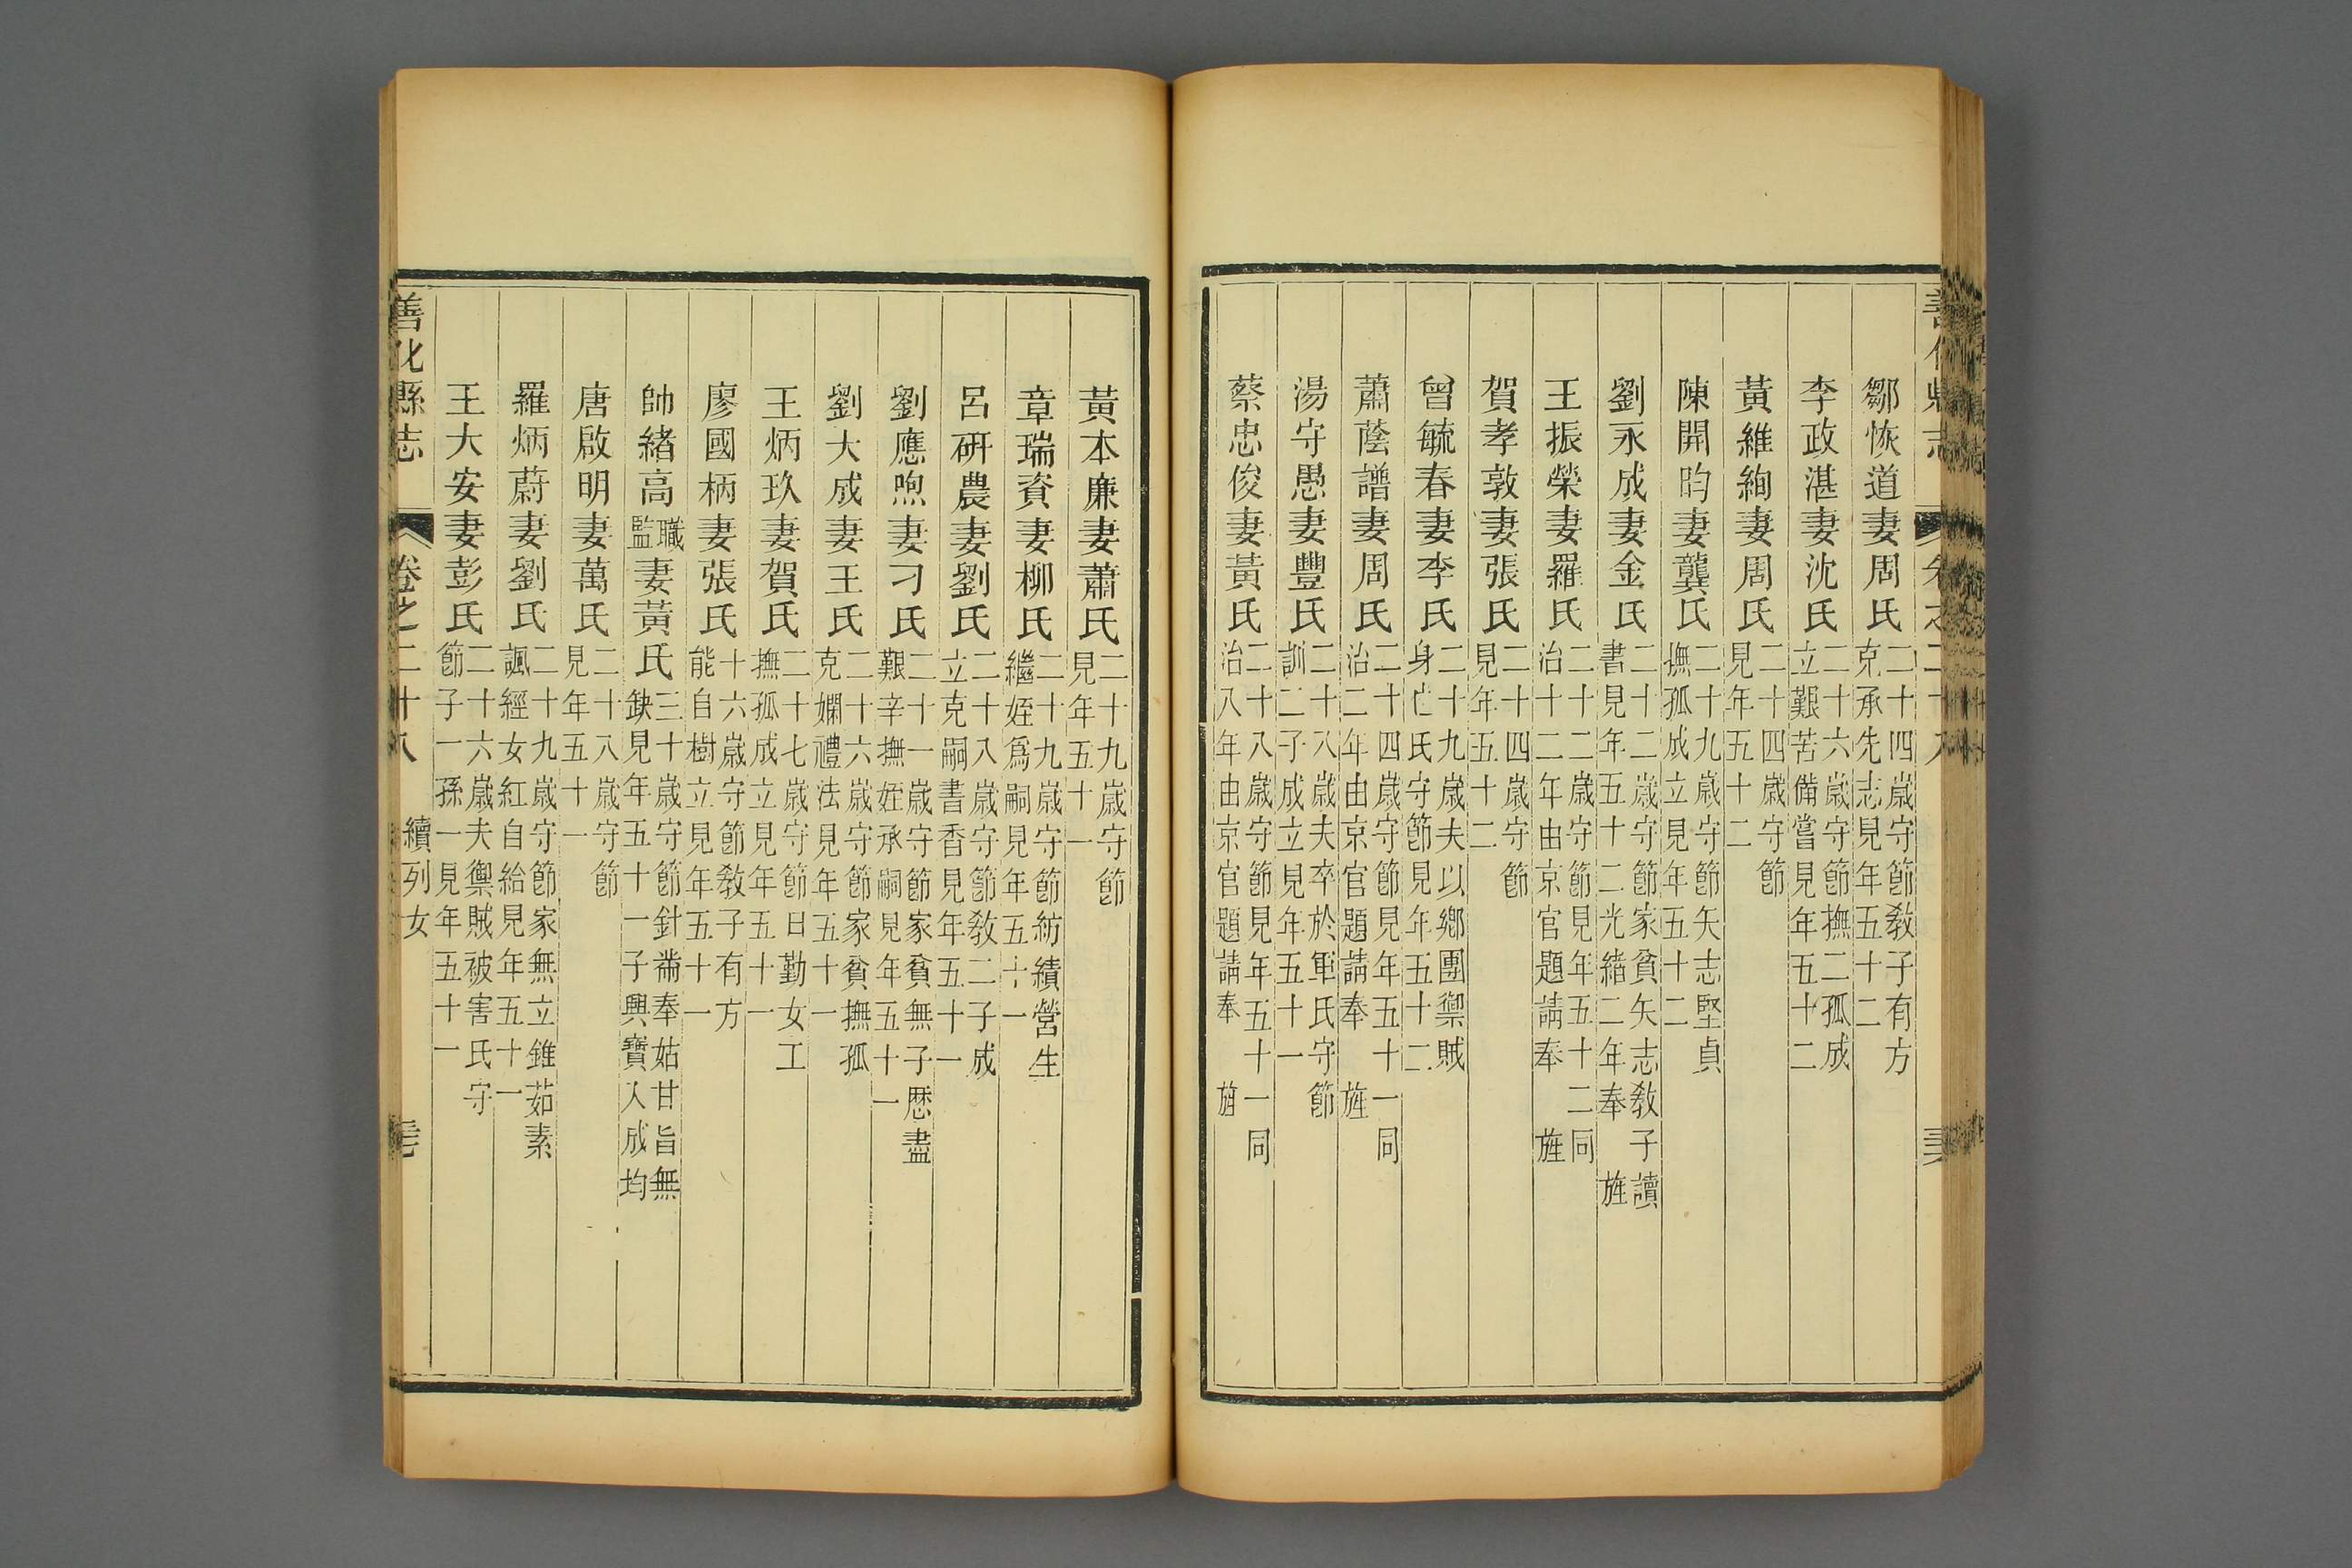 鄒恢道妻周氏二十四歲守節教子有方克承先志見年五十二
李政湛妻沈氏二十六歲守節撫二孤成立艱苦備嘗見年五十二
黃維絢妻周氏二十四歲守節見年五十二
陳開昀妻龔氏二十九歲守節矢志堅貞撫孤成立見年五十二
劉永成妻金氏二十二歲守節家貧矢志教子讀書見年五十二光緒二年奉 旌
王振榮妻羅氏二十二歲守節見年五十二同治十二年由京官題請奉 旌
賀孝敦妻張氏二十四歲守節見年五十二
曾毓春妻李氏二十九歲夫以鄉團禦賊身亡氏守節見年五十二
蕭蔭譜妻周氏二十四歲守節見年五十一同治二年由京官題請奉 旌
湯守愚妻豐氏二十八歲夫卒於軍氏守節訓二子成立見年五十一
蔡忠俊妻黃氏二十八歲守節見年五十一同治八年由京官題請奉 旌
黃本廉妻蕭氏二十九歲守節見年五十一
章瑞資妻柳氏二十九歲守節紡績營生繼姪爲嗣見年五十一
呂研農妻劉氏二十八歲守節教二子成立克嗣書香見年五十一
劉應煦妻刁氏二十一歲守節家貧無子歷盡艱辛撫姪承嗣見年五十一
劉大成妻王氏二十六歲守節家貧撫孤克嫻禮法見年五十一
王炳玖妻賀氏二十七歲守節日勤女工撫孤成立見年五十一
廖國柄妻張氏十六歲守節教子有方能自樹立見年五十一
帥緒高職監妻黃氏三十歲守節針黹奉姑甘旨無缺見年五十一子興寶入成均
唐啟明妻萬氏二十八歲守節見年五十一
羅炳蔚妻劉氏二十九歲守節家無立錐茹素諷經女紅自給見年五十一
王大安妻彭氏二十六歲夫禦賊被害氏守節子一孫一見年五十一
善化縣志 卷之二十八 續列女